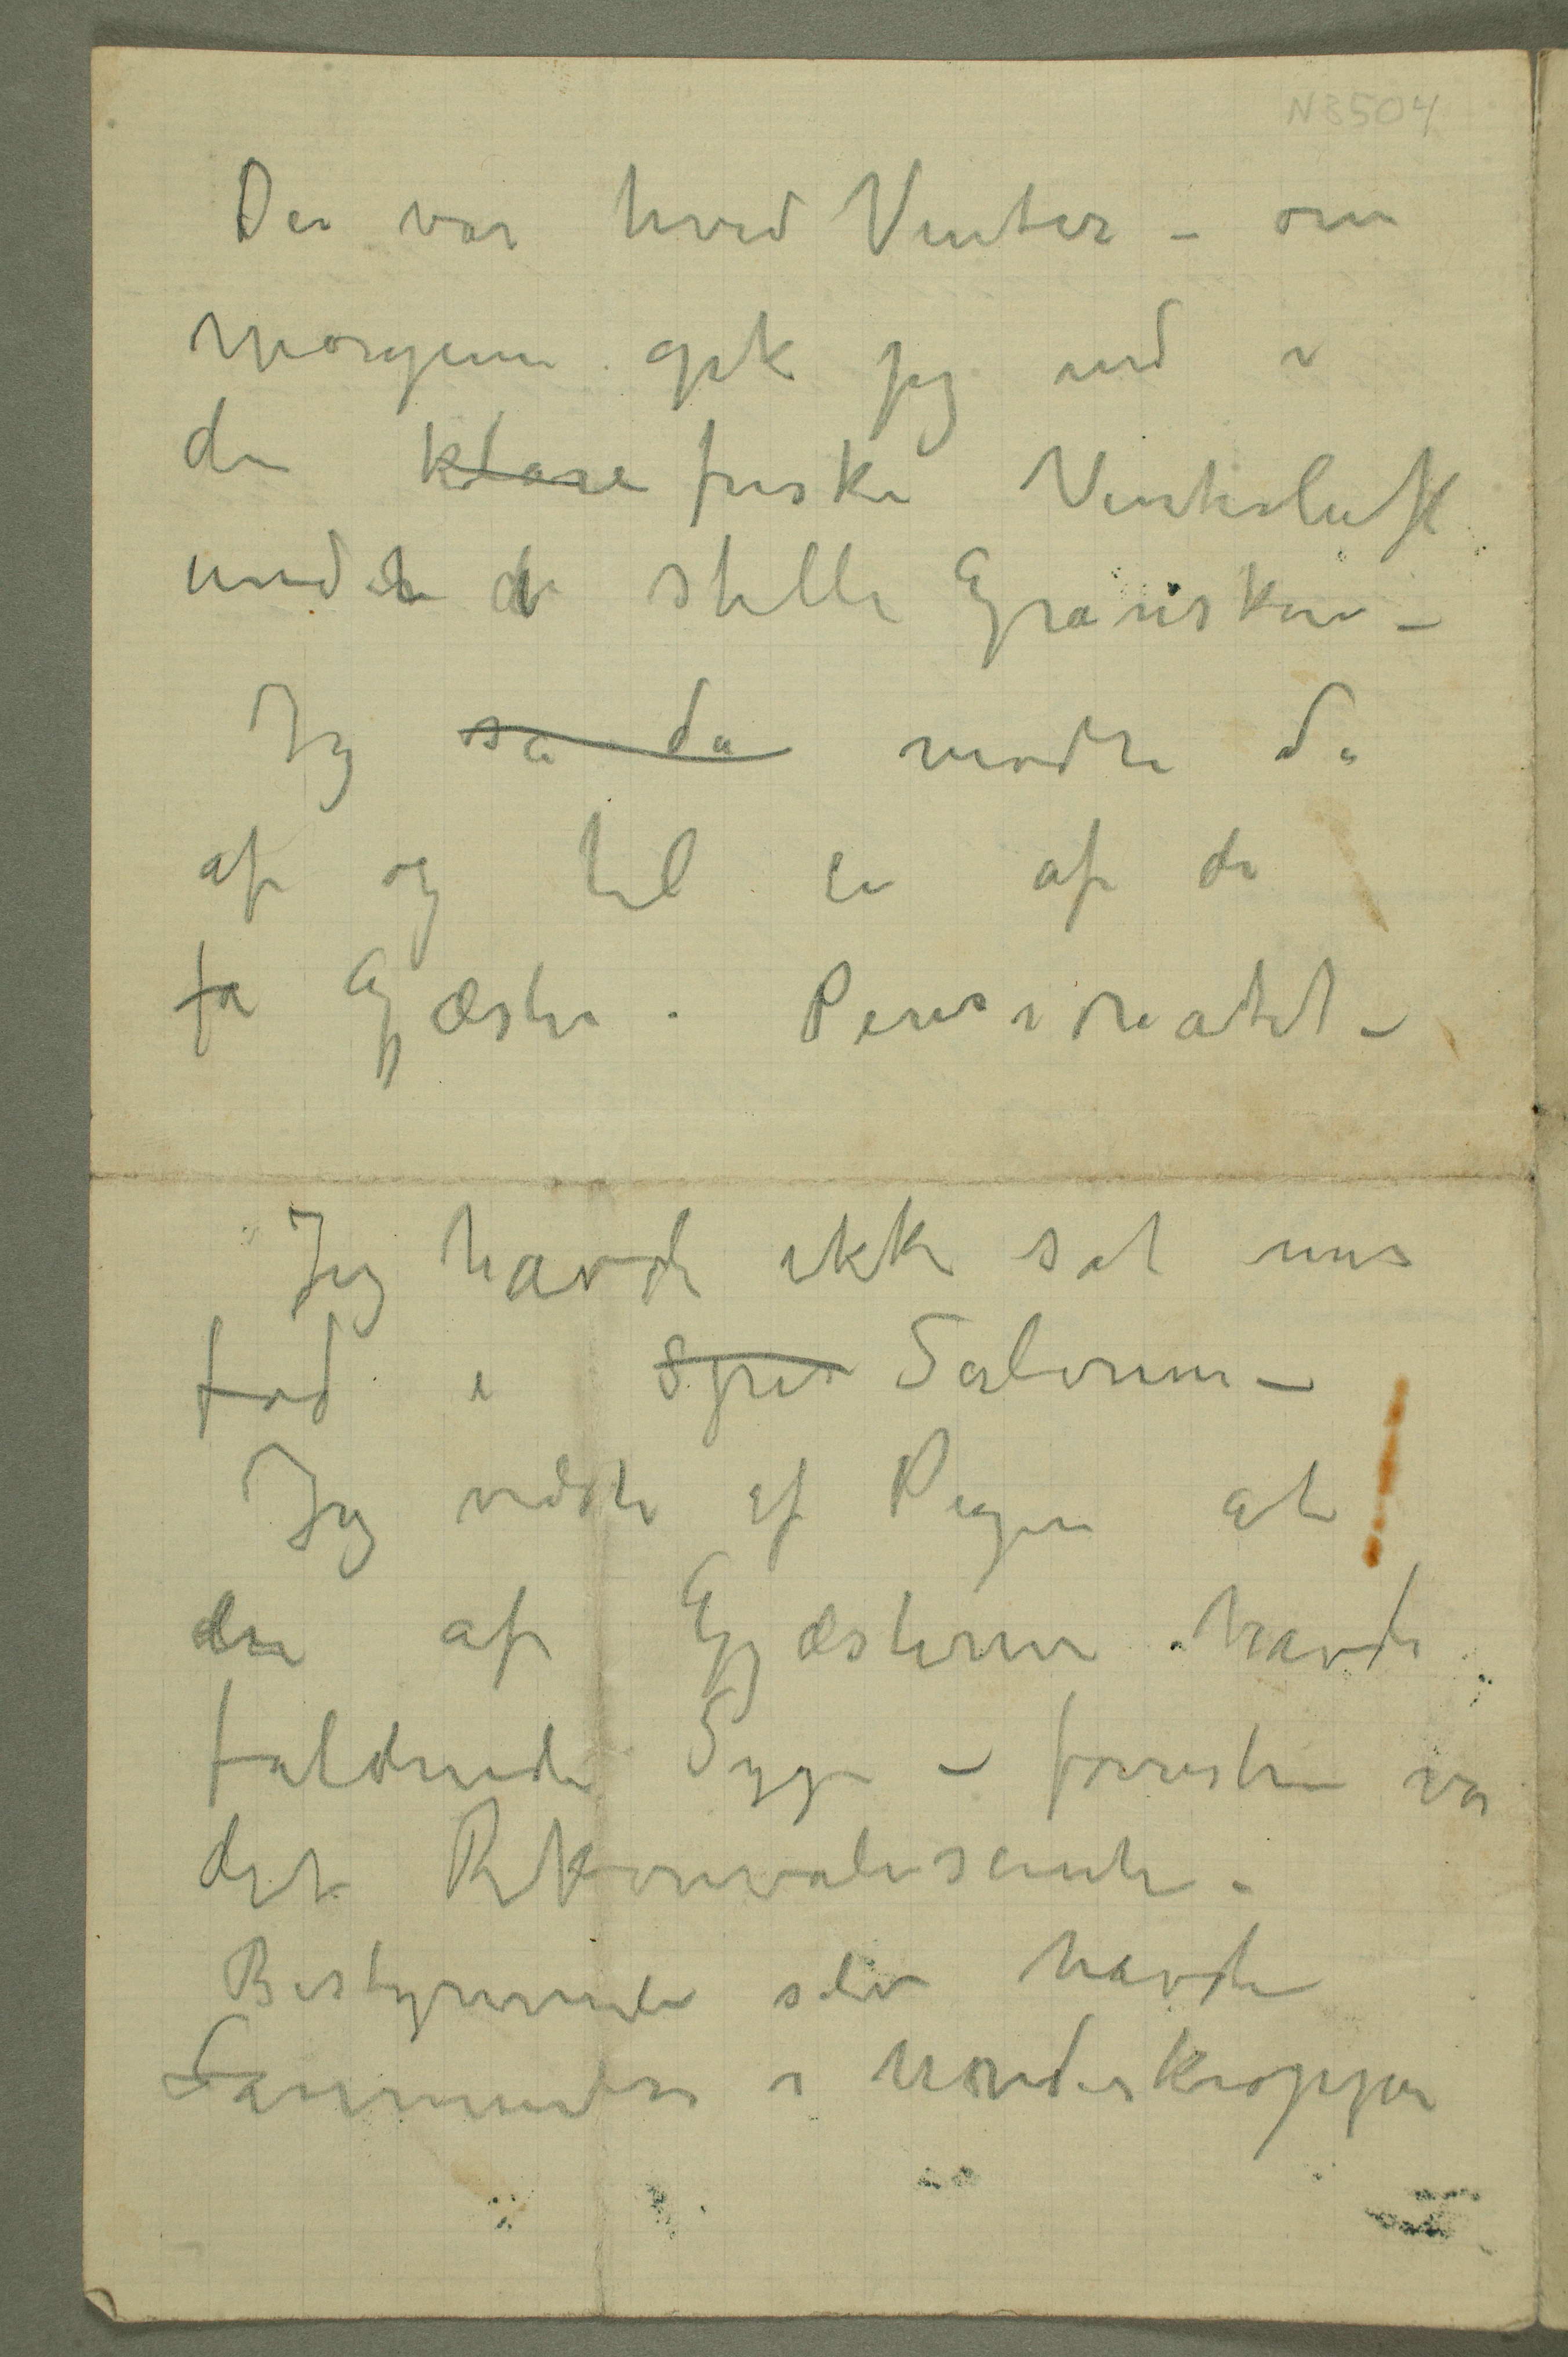 N3504
Det var hvid Vinter – om
morgenen gik jeg ud i
den klare friske Vinterluft
under de stille Granskov –
Jeg så da mødte da
af og til en af de
få Gjæster i Pensionatet –
Jeg havde ikke sat min
fod i Spis Salonen –
Jeg vidste af Pigen at
en af Gjæsterne havde
faldende Syge – forresten var
det Rekonvalesenter.
Bestyrerinden selv havde
Fornemmelser i underkroppen